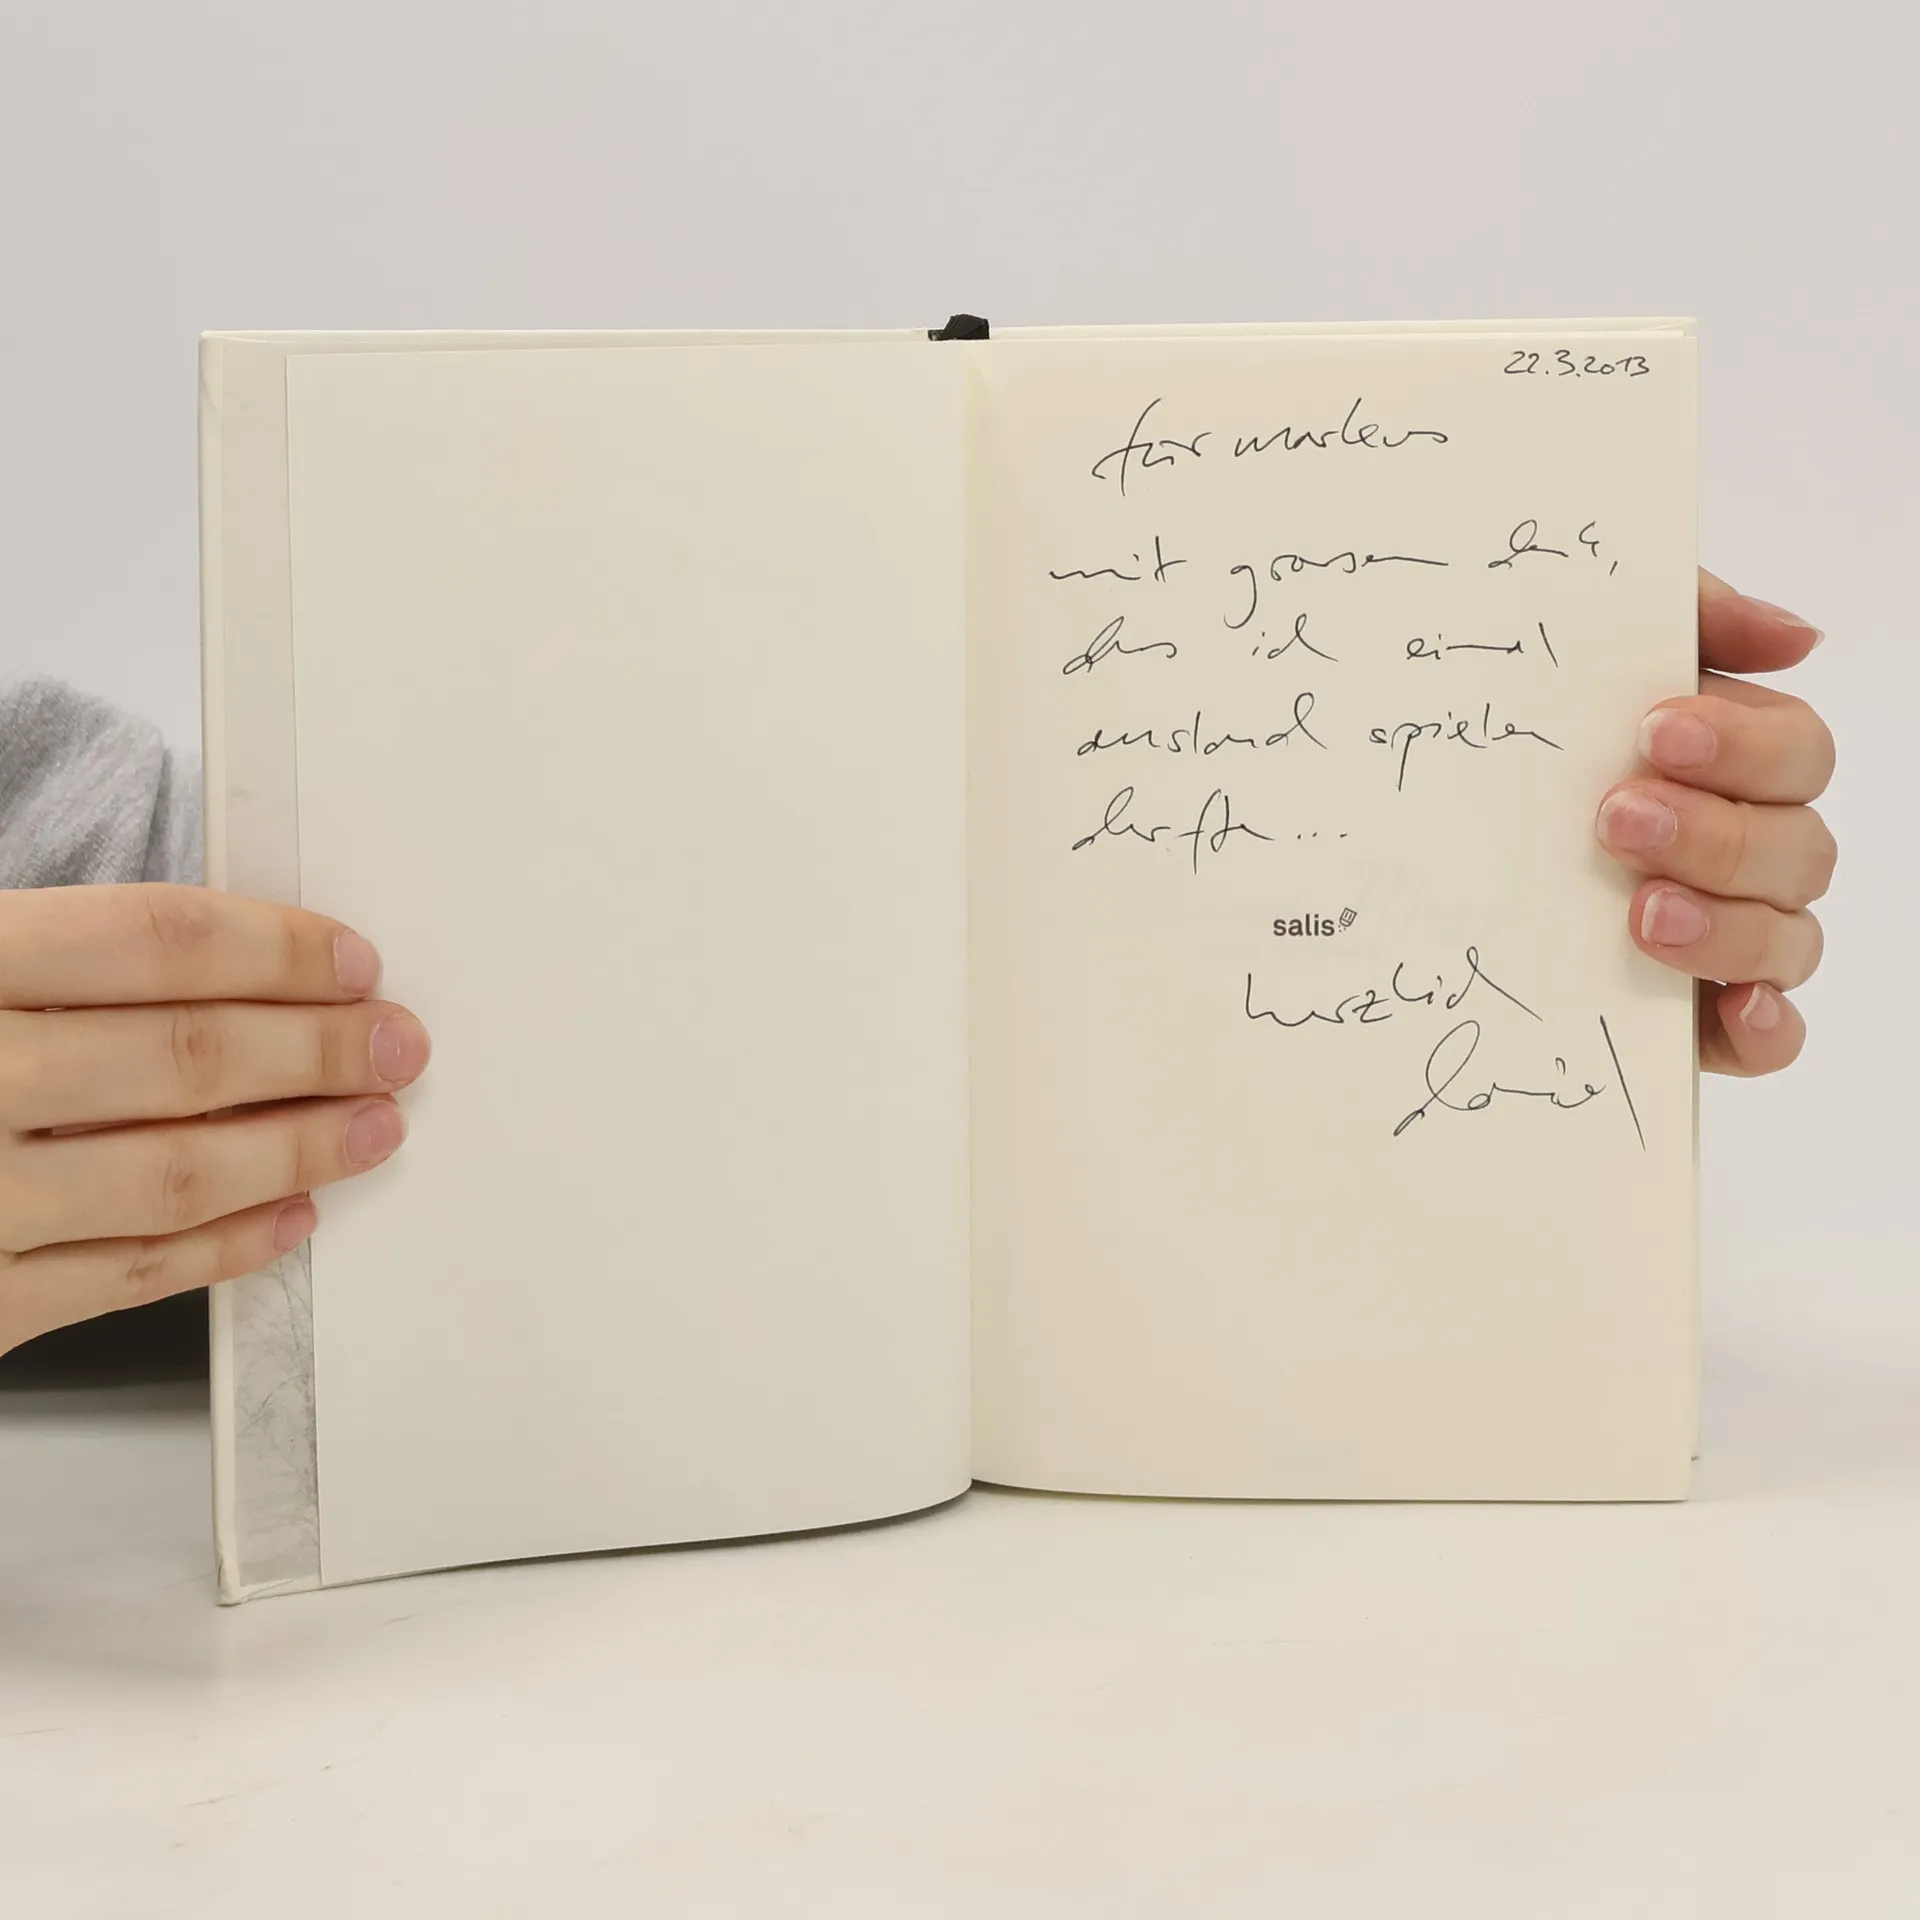 22.3.2013
für markus
mit grossem dank,
dass ich einmal
ausland spielen
durfte...
salis
herzlich
daniel